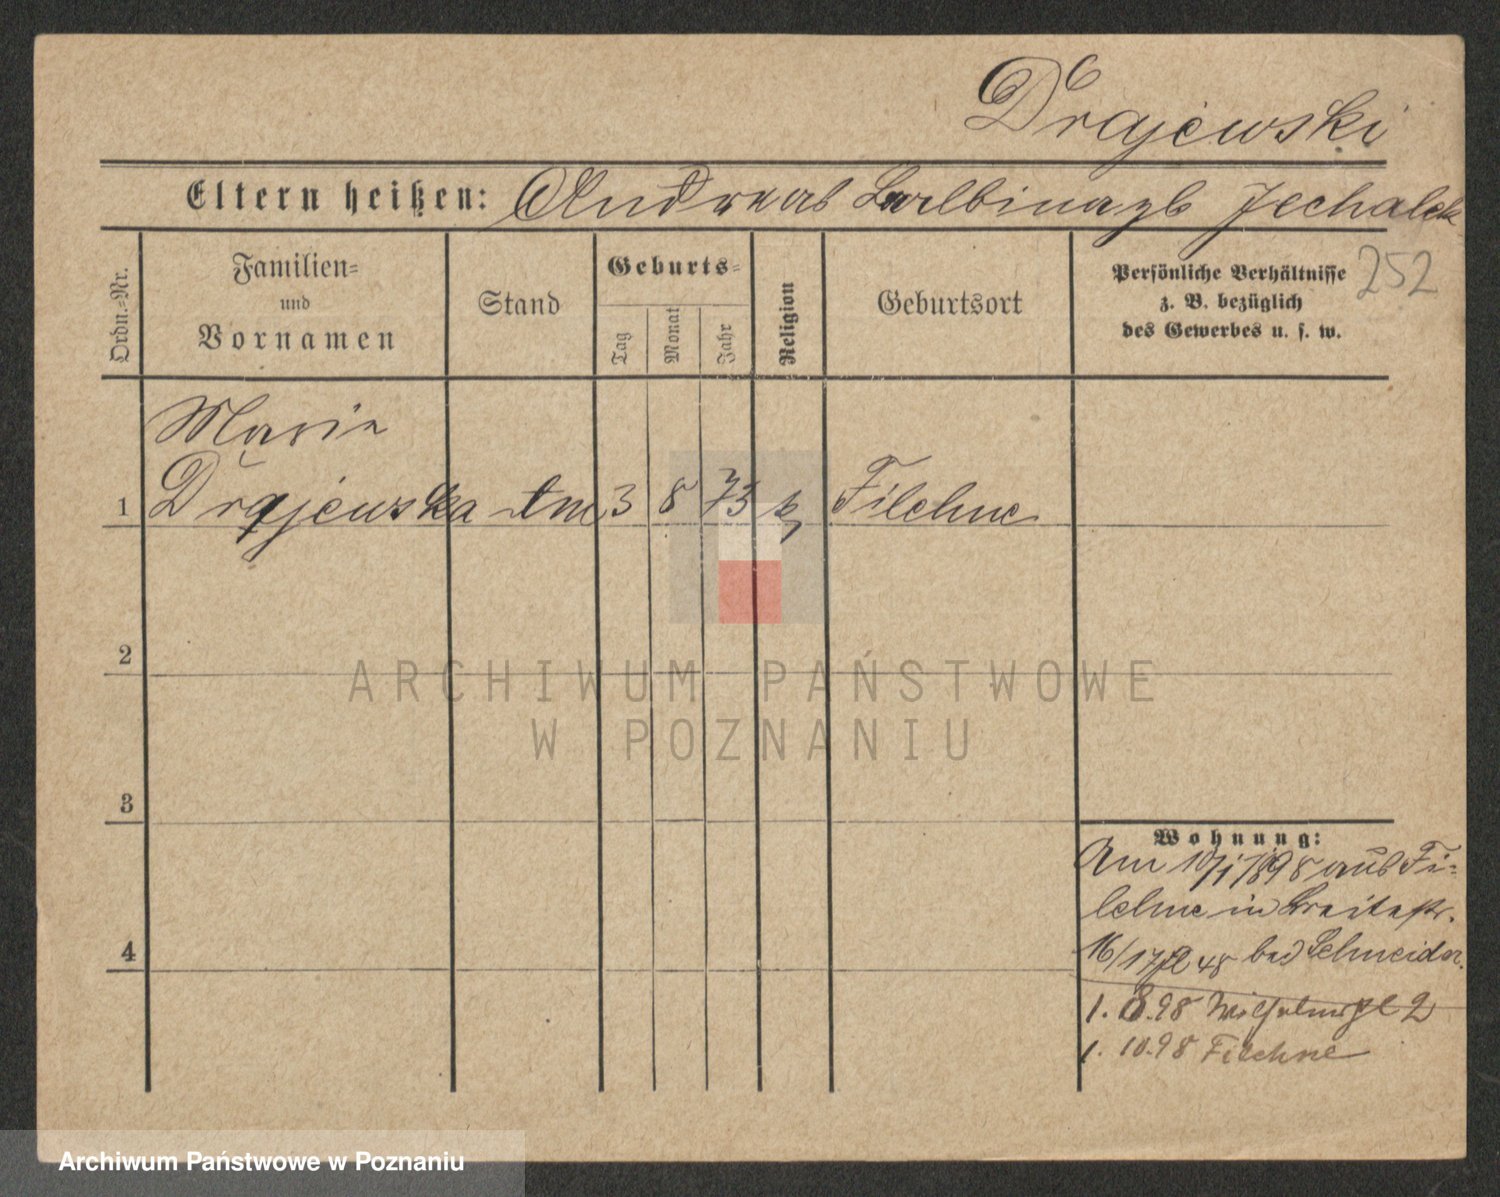 Drajewski
Eltern heißen: Andreas Balbina gb Jechalek
Ordn.=Nr.
Familien=
und
Vornamen
Stand
Geburts=
Tag
Monat
Jahr
Religion
Geburtsort
Persönliche Verhältnisse
z. B. bezüglich
des Gewerbes u. s. w.
252
Marie
1 Drajewska 3 8 73 k Filehne
2
3
4
ARCHIWUM PAŃSTWOWE
W POZNANIU
Wohnung:
Am 10/1 1898 aus Fi=
lehne in Breitestr.
16/17 bei Schneider.
1. 8.98 Wilhelmspl 2
1. 10.98 Filehne
Archiwum Państwowe w Poznaniu